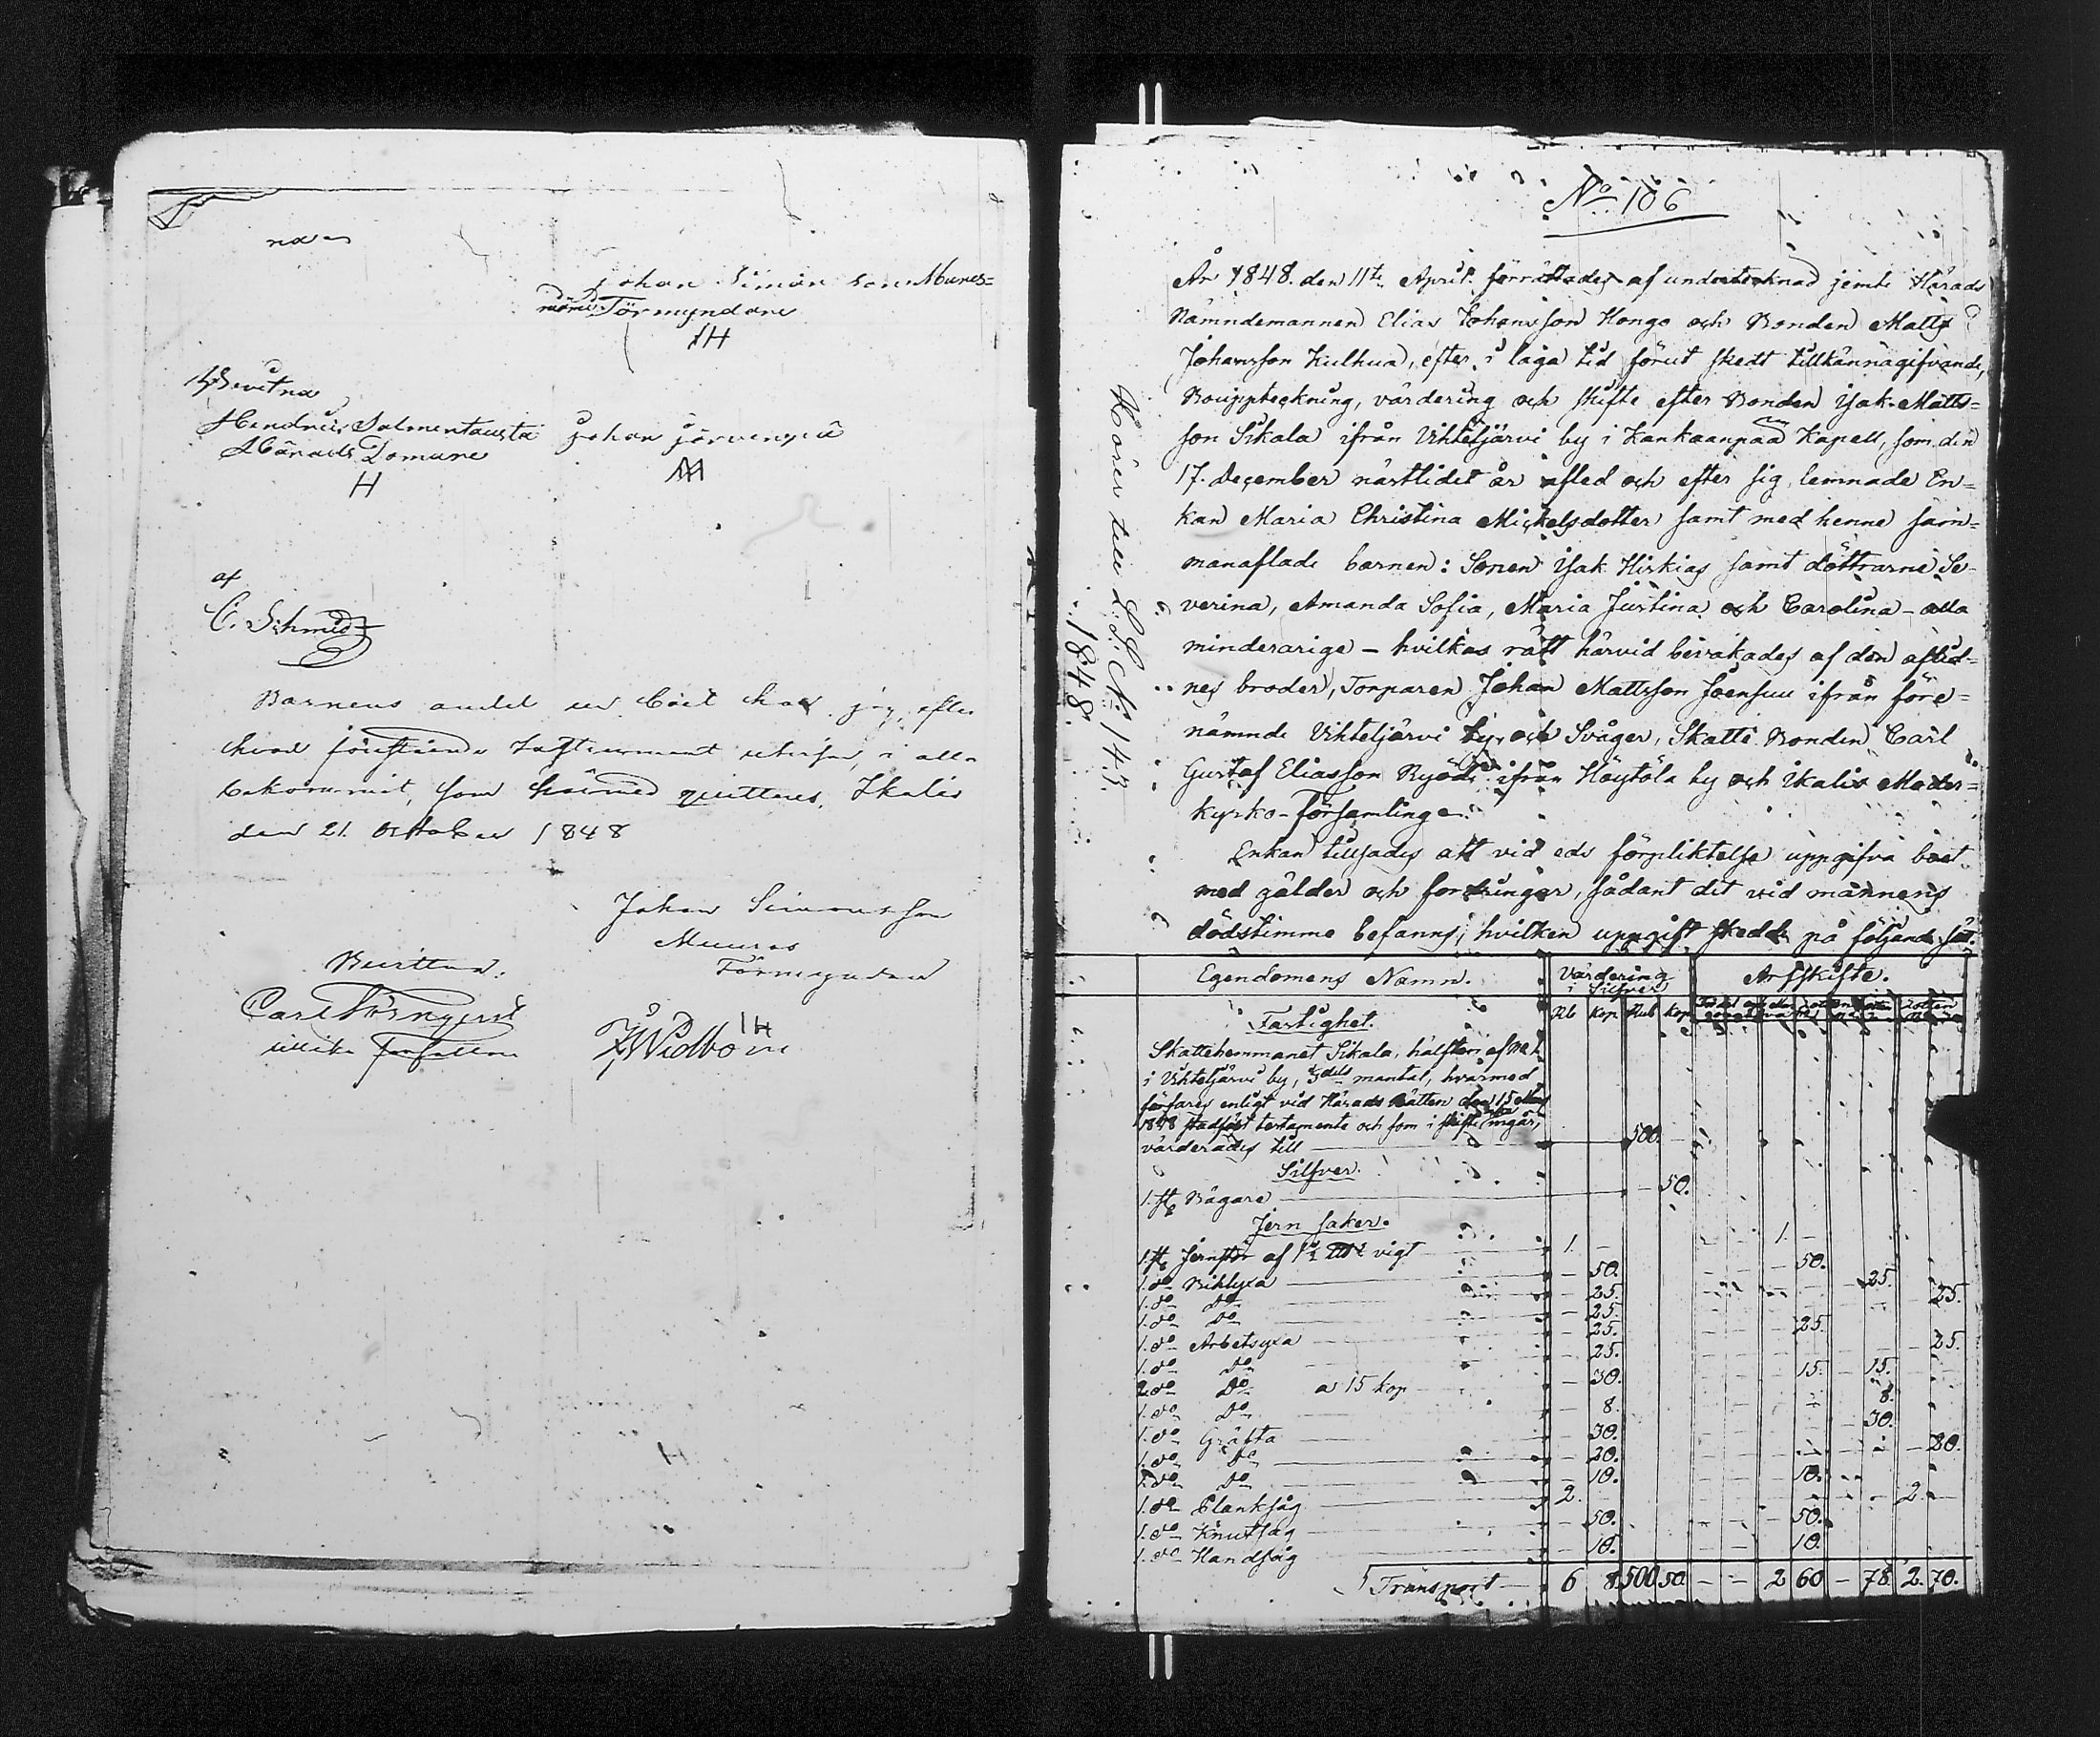 Johan Simon son Mures=
Förmyndare
IH
Bevitna
Salmentausta Johan Järvenpä
Härads Domare
H
af
C. Schmidt
Barnens andel ur boet har jag, efter
hvad förestående Instrument utvisar, i allo
bekommit, som härmed quitteras. Ikalis
den 21 October 1848
Johan Simonsson
Muuras
Förmyndare
IH
Bevittna:
Carl Törnqvist J Widbom
No 106
År 1848. den 11te April förrättades af undertecknad jemte Härads
Nämndemannen Elias Johansson Hongo och Bonden Matts
Johansson Kulhua, efter i laga tid förut skedt tillkännagifvande,
Bouppteckning, värdering och skifte efter Bonden Isak Matts=
son Sikala ifrån Vihteljärvi by i Kankaanpää Kapell, som den
17. December nästlidet år afled och efter sig lemnade En=
kan Maria Christina Mickelsdotter samt med henne sam=
manaflade barnen: Sonen Isak Hiskias samt döttrarne Se=
verina, Amanda Sofia, Maria Justina och Carolina – alla
minderarige – hvilkas rätt härvid bevakades af den aflid=
nes broder, Torparen Johan Mattsson Joensuu ifrån före=
nämnde Vihteljärvi by, och Svåger, Skatte Bonden Carl
Gustaf Eliasson Ryödi ifrån Höytölä by och Ikalis Moder=
kyrko-Församlinge.
Enkan tillsades att vid eds förpliktelse uppgifva boet
med gälder och fordringar, sådant det vid mannens
dödstimme befanns; hvilken uppgift skedde på följande sät.
Hörer till L. S. C. N: 143
1848.
Egendomens Namn. Värdering i Silfver Arfskifte.
Rb Kop Rub Kop
Fastighet.
Skattehemmanet Sikala, hälften af No 1
i Vihteljärvi by, mantal, hvarmed
förfares enligt vid Härads Rätten den 15 Mars
1848 stadfäst testamente och som i skifte ingår,
värderades till — 500.
Silfver.
1. st Bägare — 50.
Jern saker.
1. st Jernstör af 1½ vigt 1. – 1. –
1. do Bihlyxa – 50. – 50.
1. do Do – 25. – 25.
1. do Do – 25. – 25.
1. do Arbetsyxa – 25. – 25.
1. do Do – 25. – 25.
2. do Do a 15 kop – 30. – 15. – 15.
1. do Do – 8. – 8.
1. do Gräfta – 30. – 30.
1. do Do – 20. – 20.
1. do Do – 10. – 10.
1. do Planksåg 2. – 2. –
1. do Knutsåg – 50. – 50.
1. do Handsåg – 10. – 10.
Transport 6 8 500 50 – – 2 60 – 78 2. 70.